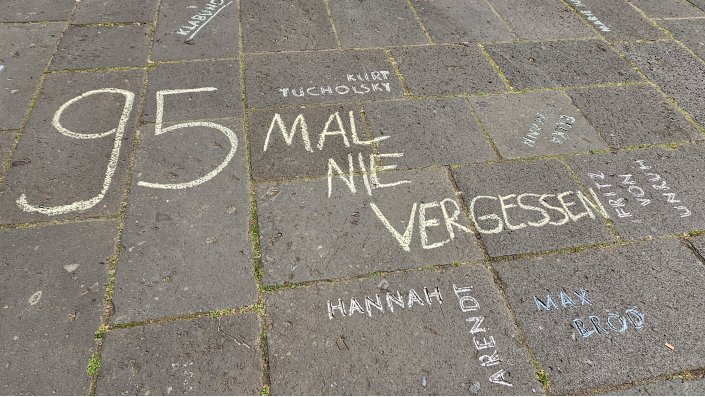 KLABUND
KURT
TUCHOLSKY
95 MAL
NIE
VERGESSEN
FRITZ
VON
UNRUH
HANNAH
ARENDT
MAX
BROD